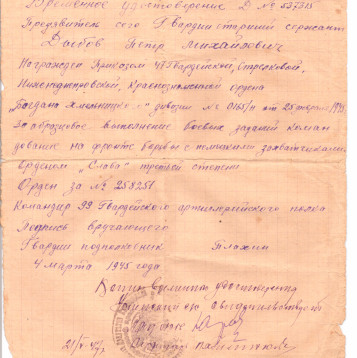 Временное удостоверение Д № 537313
Предъявитель сего Гвардии старший сержант
Дыбов Петр Михайлович
Награжден Приказом 48 Гвардейской, Стрелковой,
Нижнеднепровской, Краснознаменной ордена
"Богдана Хмельницко.." дивизии № 0165/н от 25
За образцовое выполнение боевых заданий коман
дования на фронте борьбы с немецкими захватчиками
орденом "Слава" третьей степени
Орден за № 258251.
Командир 99 Гвардейского артиллерийского полка
Подпись вручающего
Гвардии подполковник Плахин
4 марта 1945 года
Копия временного удостоверения